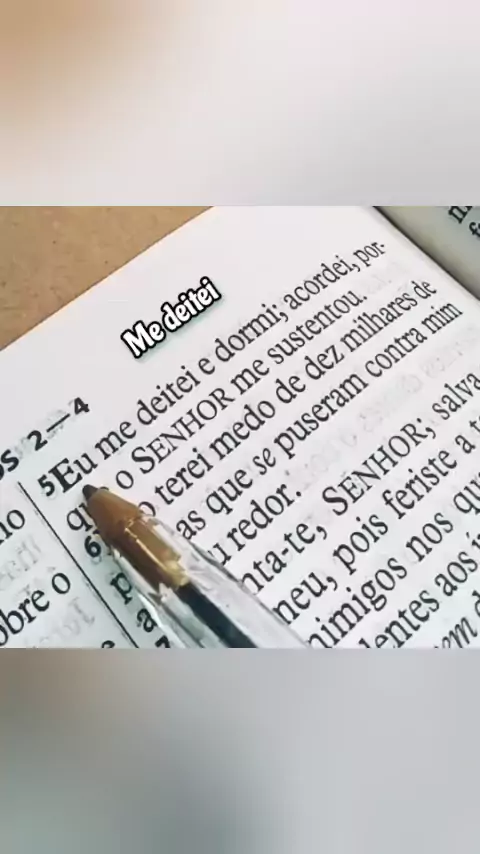 Me deitei
OS 2—4
5Eu me deitei e dormi; acordei, por-
o SENHOR me sustentou.
6 terei medo de dez milhares de
as que se puseram contra mim
redor.
nta-te, SENHOR; salva
meu, pois feriste a
inimigos nos
dentes aos
obre o